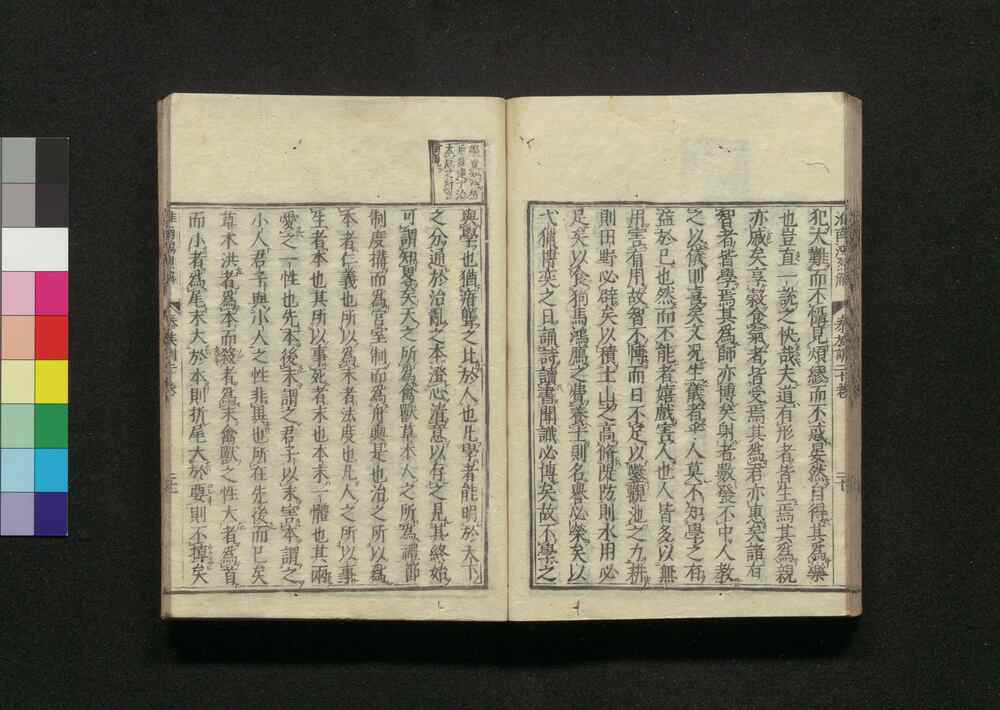 淮南鴻烈解 泰族訓二十卷
犯大難而不懾見煩繆而不惑晏然自得其爲樂
也豈直一説之快哉夫道有形者皆生焉其爲親
亦戚矣享穀食氣者皆受焉其爲君亦惠矣諸有
智者皆學焉其爲師亦博矣射者數發不中人教
之以儀則喜矣又况生儀者乎人莫不知學之有
益於己也然而不能者嬉戲害人也人皆多以無
用害有用故智不博而日不足以鑿觀池之力耕
則田野必辟矣以積土山之高修隄防則水用必
足矣以食狗馬鴻鴈之費養士則名譽必榮矣以
弋獵博奕之日誦詩讀書聞識必博矣故不學之
與學也猶瘖聾之比於人也凡學者能明於天下
之分通於治亂之本澄心清意以存之見其終始
可謂知畧矣天之所爲禽獸草木人之所爲禮節
制度構而爲宮室制而爲舟輿是也治之所以爲
本者仁義也所以爲末者法度也凡人之所以事
生者本也其所以事死者末也本末一體也其兩
愛之一性也先本後末謂之君子以末害本謂之
小人君子與小人之性非異也所在先後而已矣
草木洪者爲本而殺者爲末禽獸之性大者爲首
而小者爲尾末大於本則折尾大於要則不掉矣